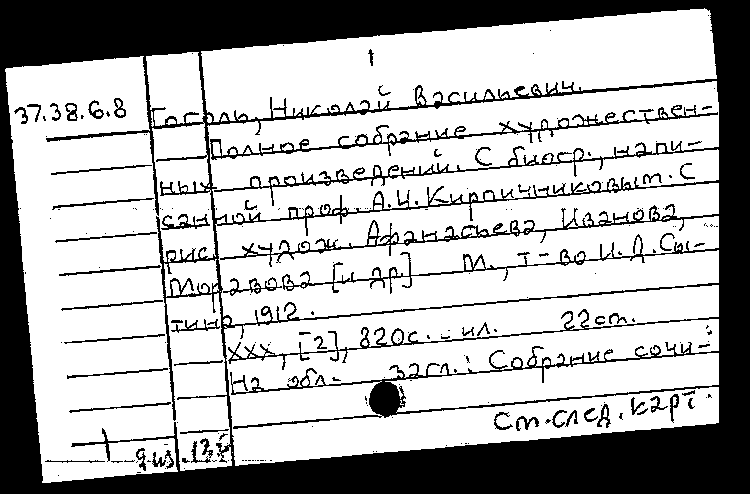 1
37.38.6.8 Гоголь, Николай Васильевич.
Полное собрание художествен-
ных произведений. С биогр., напи-
санной проф. А.И. Кирпичниковым. С
рис. худож. Афанасьева, Иванова,
Моравова [и др.] М., т-во И.Д. Сы-
тина, 1912.
XXX, [2], 820с. - ил. 22см.
На обл. загл.: Собрание сочи-
См. след. карт.